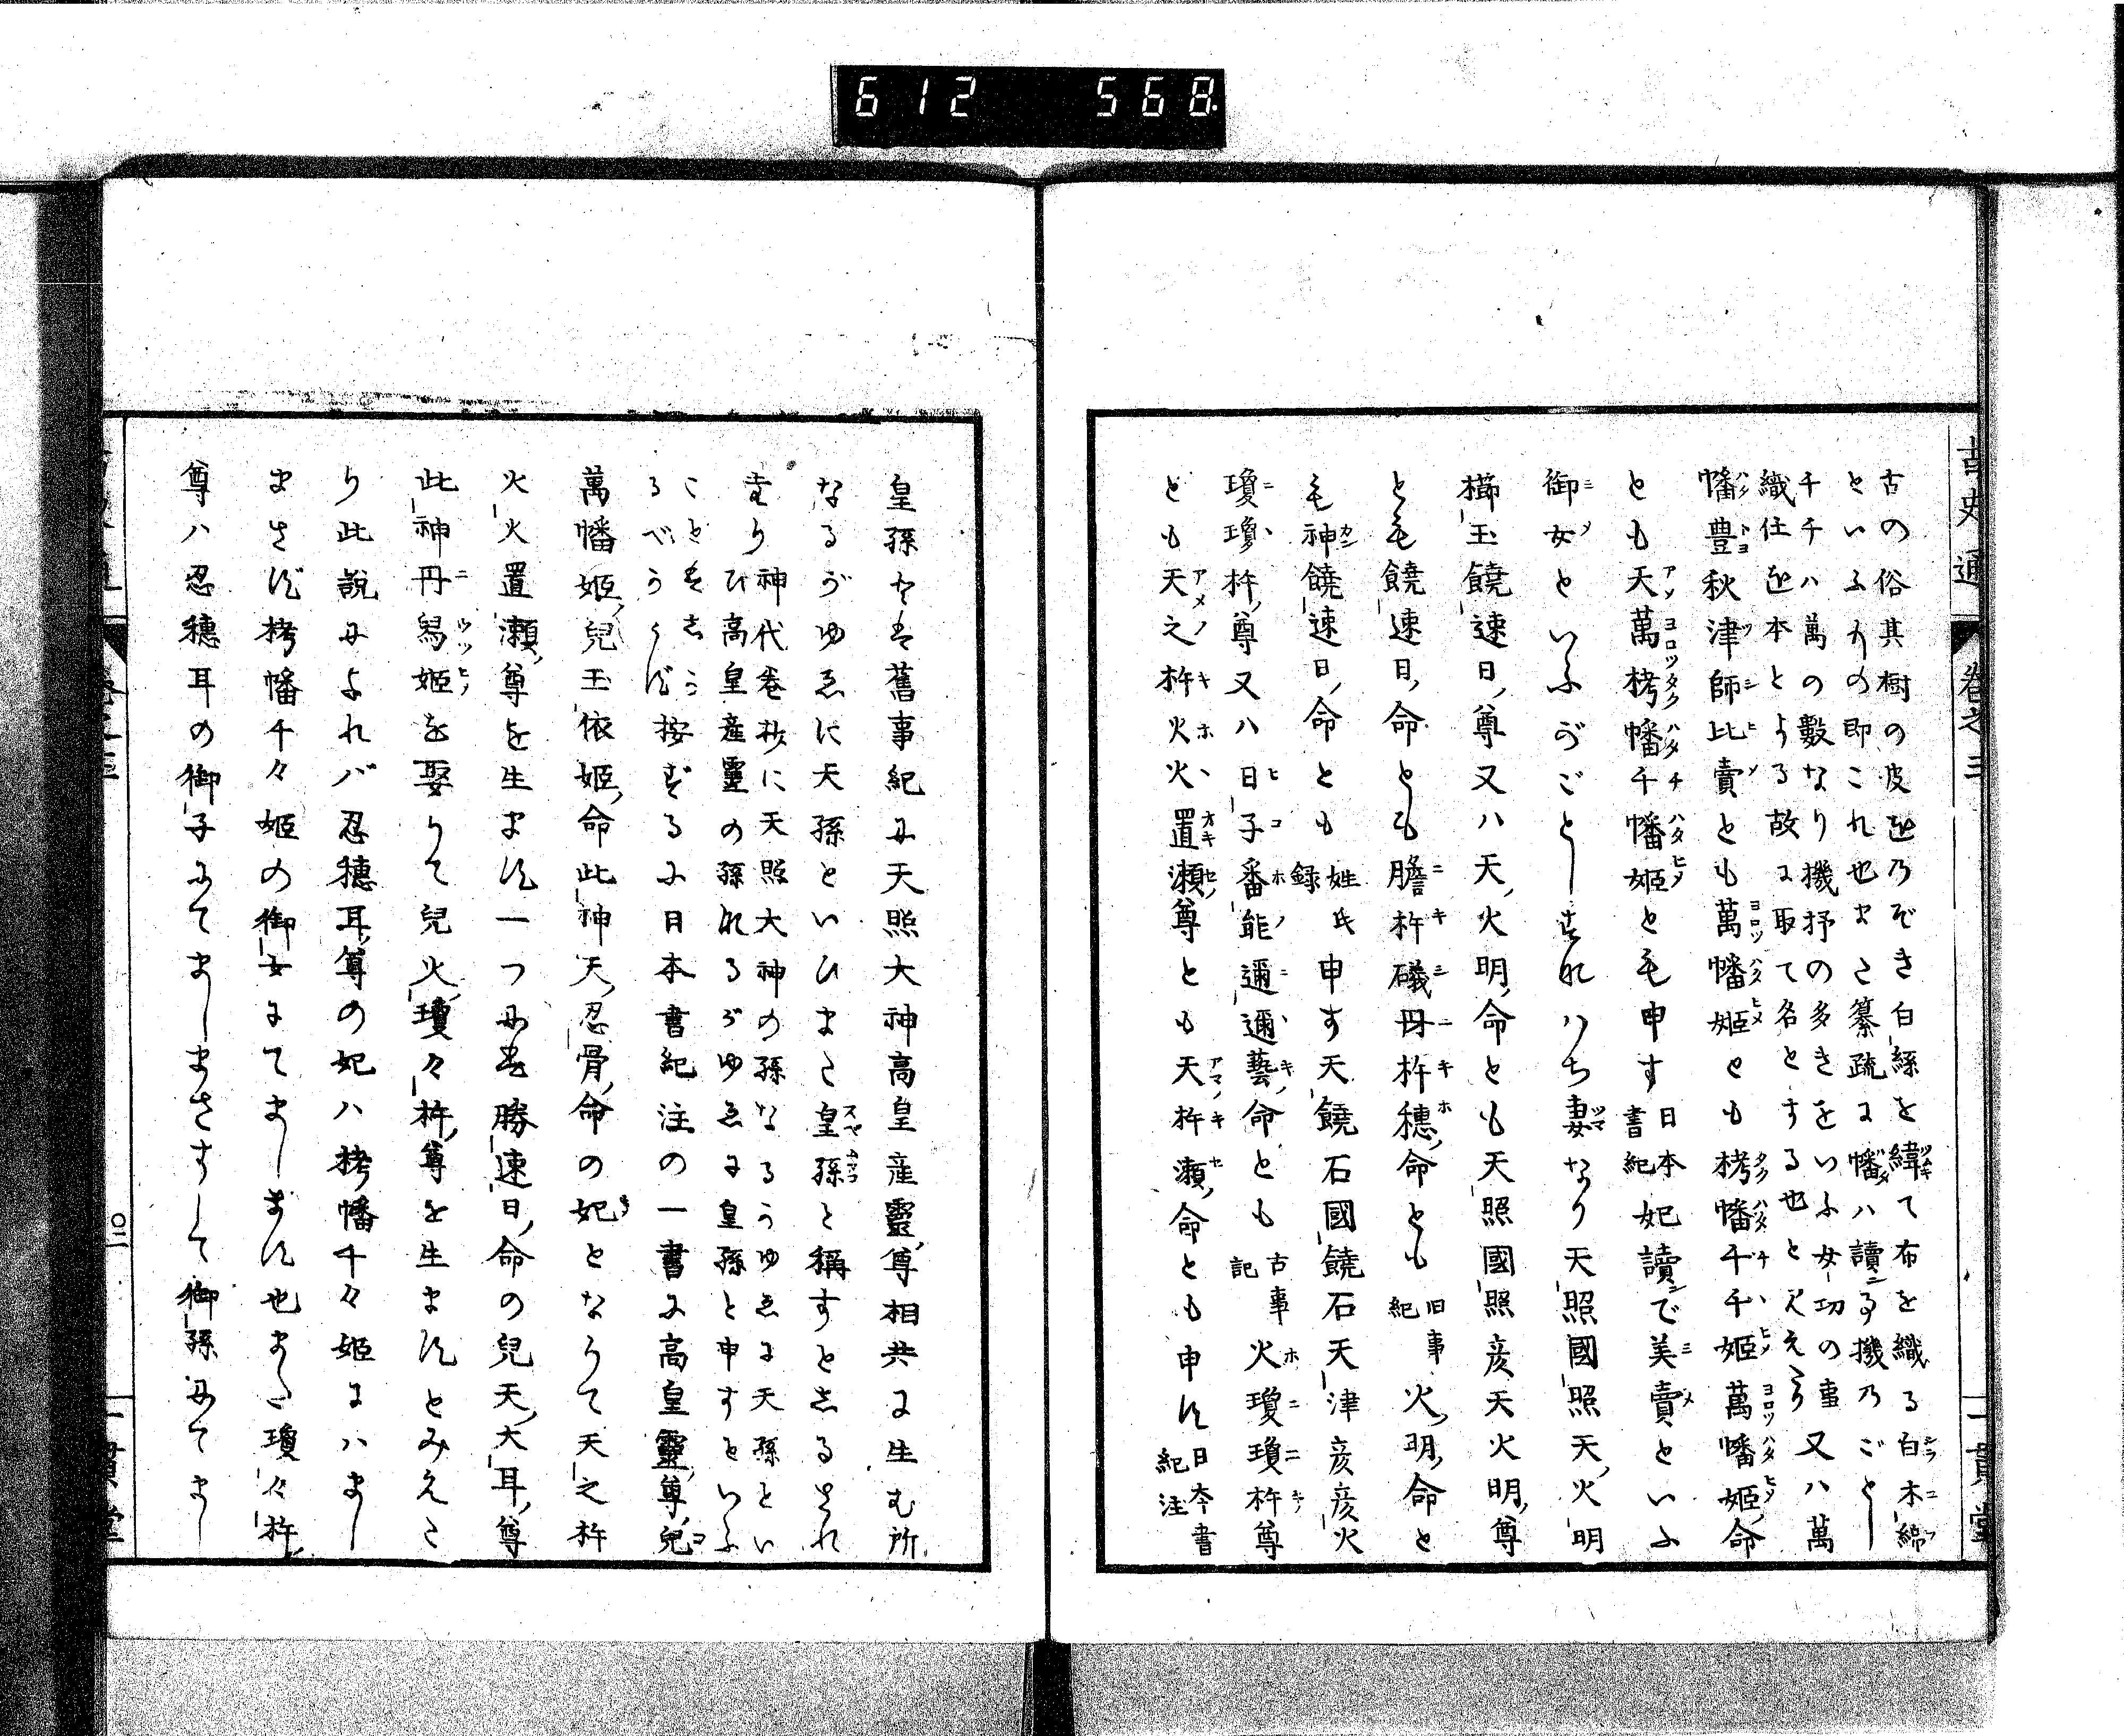 612 568
古史通 卷之三 一貫堂
古の俗其樹の皮を乃ぞき白絲を緯て布を織る白木綿
といふもの即これ也また纂疏に幡ハ讀る機乃ごとし
千千ハ萬の數なり機抒の多きをいふ女功の事又ハ萬
織仕を本とする故に取て名とする也と見えたり
幡豊秋津師比賣とも萬幡姫とも栲幡千千姫萬幡姫命
とも天萬栲幡千幡姫と毛申す日本書紀妃讀で美賣といふ
御女といふがごとし是れハち妻なり天照國照天火明
櫛玉饒速日尊又ハ天火明命とも天照國照彦天火明尊
とも饒速日命とも膽杵磯丹杵穗命とも旧事紀火明命と
毛神饒速日命とも姓氏録申す天饒石國饒石天津彦彦火
瓊瓊杵尊又ハ日子番能邇邇藝命とも古事記火瓊瓊杵尊
とも天之杵火火置瀬尊とも天杵瀬命とも申す日本書紀注
皇孫とは舊事紀に天照大神高皇産靈尊相共に生む所
なるがゆゑに天孫といひまた皇孫と稱すとしるされ
たり神代卷抄に天照大神の孫なるうゆゑに天孫とい
ひ高皇産靈の孫れるがゆゑに皇孫と申すといふ
ことはしかるべからず按ずるに日本書紀注の一書に高皇靈尊兒
萬幡姫兒玉依姫命此神天忍骨命の妃となりて天之杵
火火置瀬尊を生ます一つには勝速日命の兒天大耳尊
此神丹舄姫を娶りて兒火瓊々杵尊を生ますとみえた
り此説によれバ忍穗耳尊の妃ハ栲幡千々姫にハまし
まさず栲幡千々姫の御女にてまします也また瓊々杵
尊ハ忍穗耳の御子にてましまさすして御孫にてまし